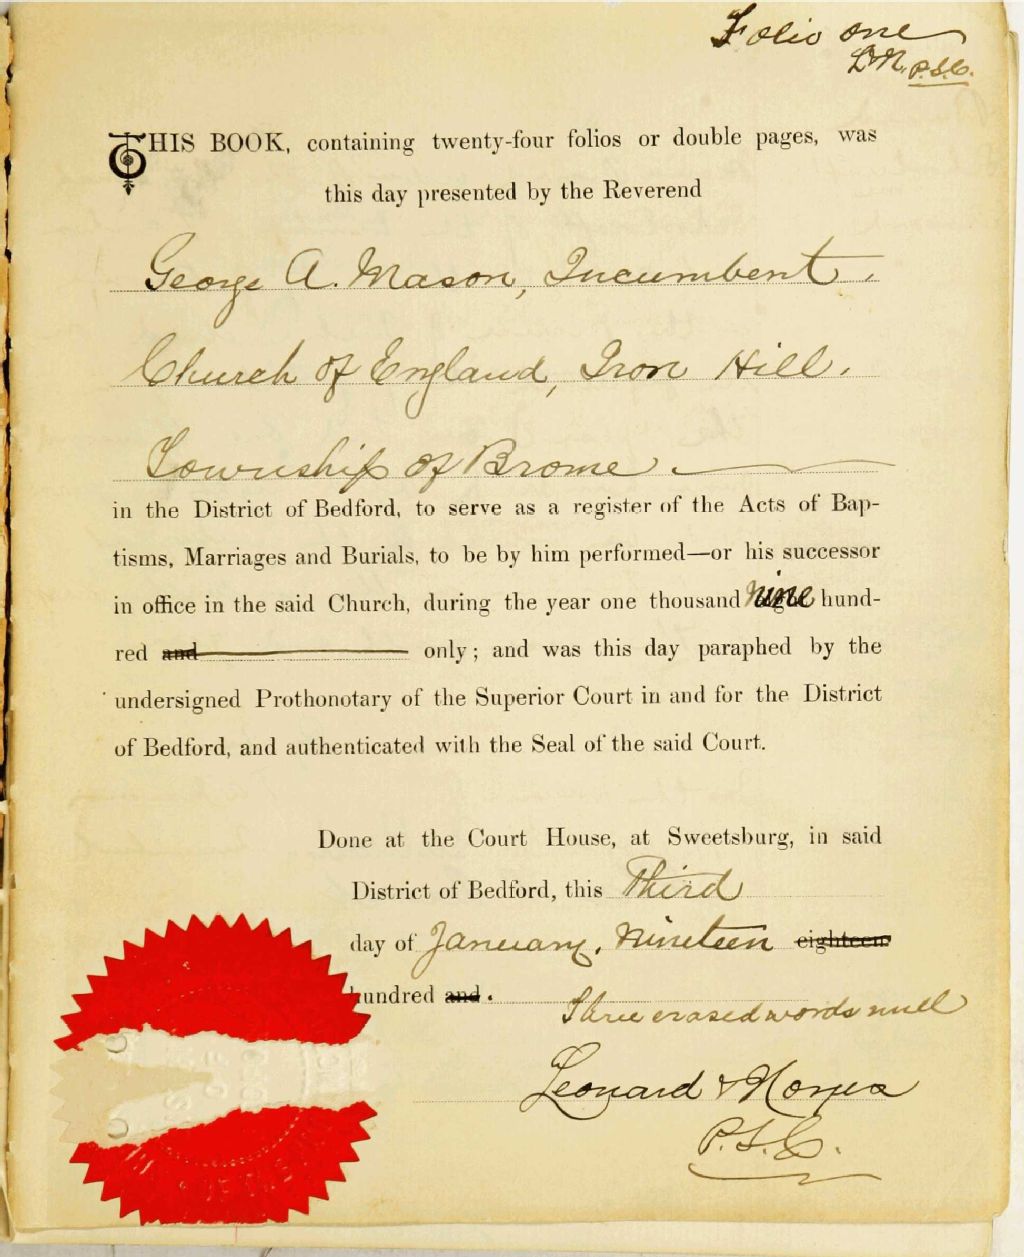 Folio one
L&N, P.S.C.
THIS BOOK, containing twenty-four folios or double pages, was
this day presented by the Reverend
George A. Mason, Incumbent,
Church of England, Iron Hill,
Township of Brome
in the District of Bedford, to serve as a register of the Acts of Bap-
tisms, Marriages and Burials, to be by him performed—or his successor
in office in the said Church, during the year one thousand nine hund-
red and only; and was this day paraphed by the
undersigned Prothonotary of the Superior Court in and for the District
of Bedford, and authenticated with the Seal of the said Court.
Done at the Court House, at Sweetsburg, in said
District of Bedford, this Third
day of January, nineteen eighteen
hundred and.
Three erased words null
Leonard & Noyes
P.S.C.